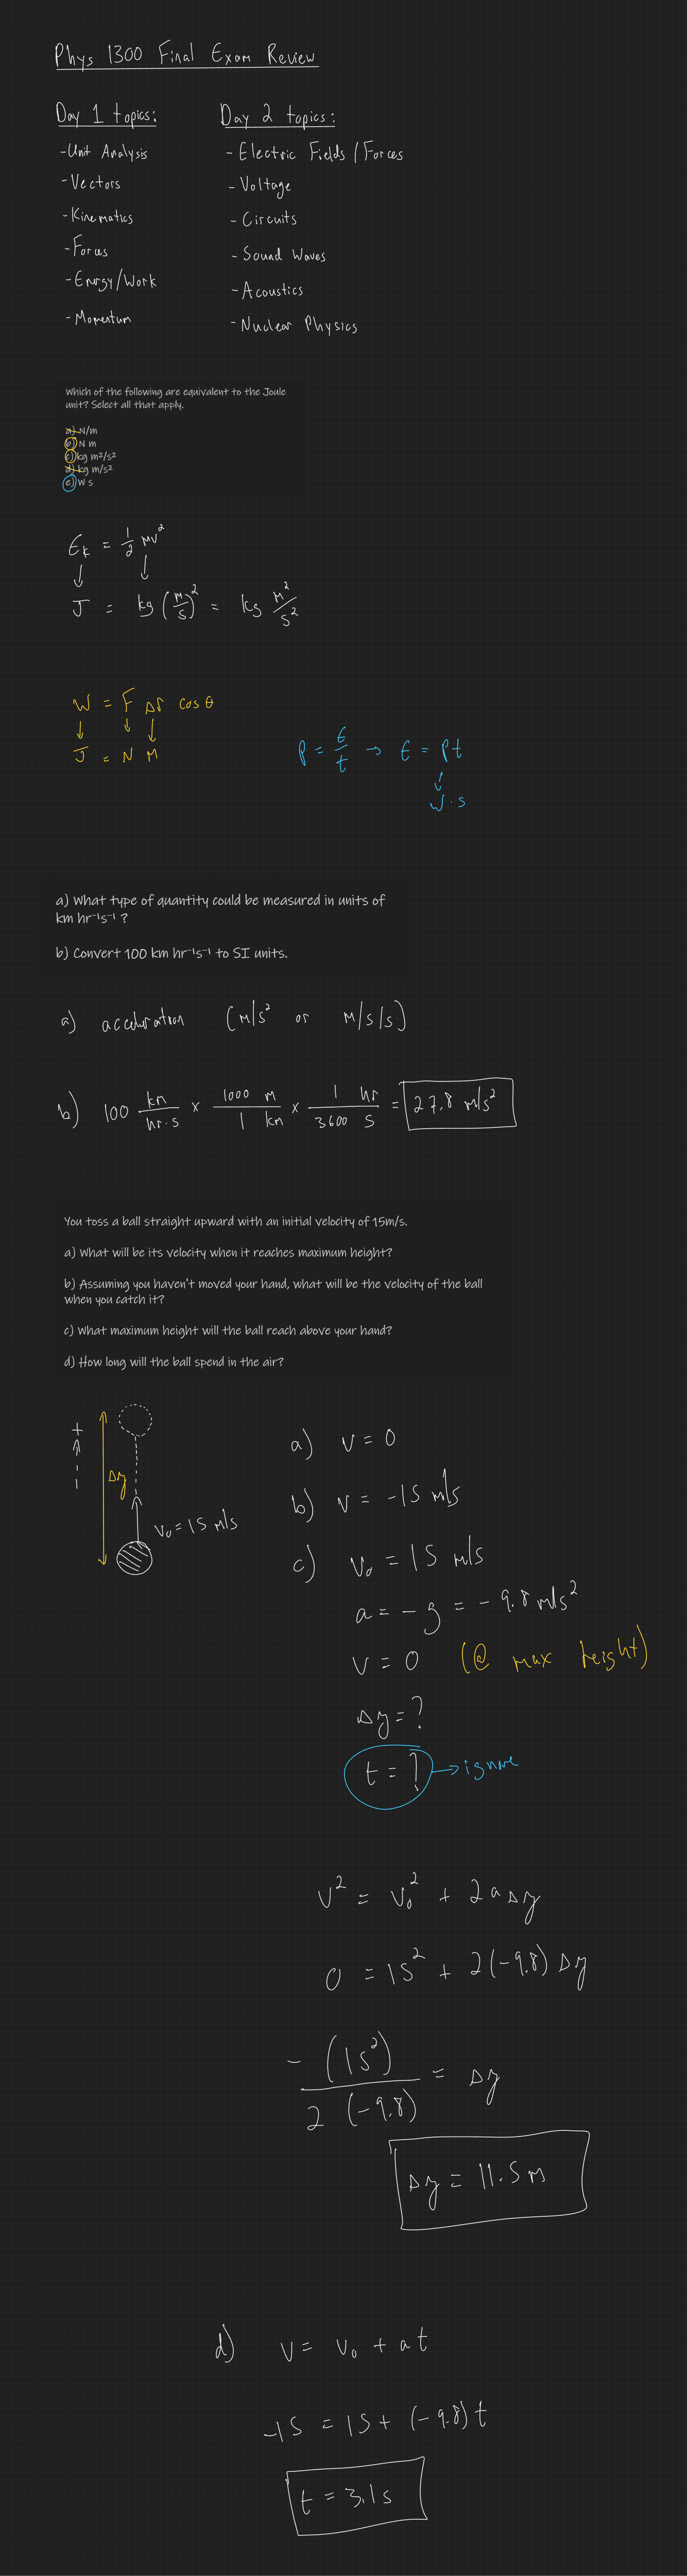 Phys 1300 Final Exam Review
Day 1 topics:
-Unit Analysis
-Vectors
-Kinematics
-Forces
-Energy/Work
-Momentum
Day 2 topics:
-Electric Fields/Forces
-Voltage
-Circuits
-Sound Waves
-Acoustics
-Nuclear Physics
Which of the following are equivalent to the Joule
unit? Select all that apply.
a) N/m
b) N m
c) kg m²/s²
d) kg m/s²
e) W s
E_k = 1/2 mv²
J = kg (m/s)² = kg m²/s²
W = F Δr cos θ
J = N m
P = E/t → E = Pt
W·s
a) What type of quantity could be measured in units of
km hr⁻¹s⁻¹ ?
b) Convert 100 km hr⁻¹s⁻¹ to SI units.
a) acceleration (m/s² or m/s/s)
b) 100 km/hr·s × 1000 m/1 km × 1 hr/3600 s = 27.8 m/s²
You toss a ball straight upward with an initial velocity of 15m/s.
a) What will be its velocity when it reaches maximum height?
b) Assuming you haven't moved your hand, what will be the velocity of the ball
when you catch it?
c) What maximum height will the ball reach above your hand?
d) How long will the ball spend in the air?
+
Δy
v₀ = 15 m/s
a) v = 0
b) v = -15 m/s
c) v₀ = 15 m/s
a = -g = -9.8 m/s²
v = 0 (@ max height)
Δy = ?
t = ? → ignore
v² = v₀² + 2aΔy
0 = 15² + 2(-9.8) Δy
-(15²)/2(-9.8) = Δy
Δy = 11.5 m
d) v = v₀ + at
-15 = 15 + (-9.8) t
t = 3.1 s